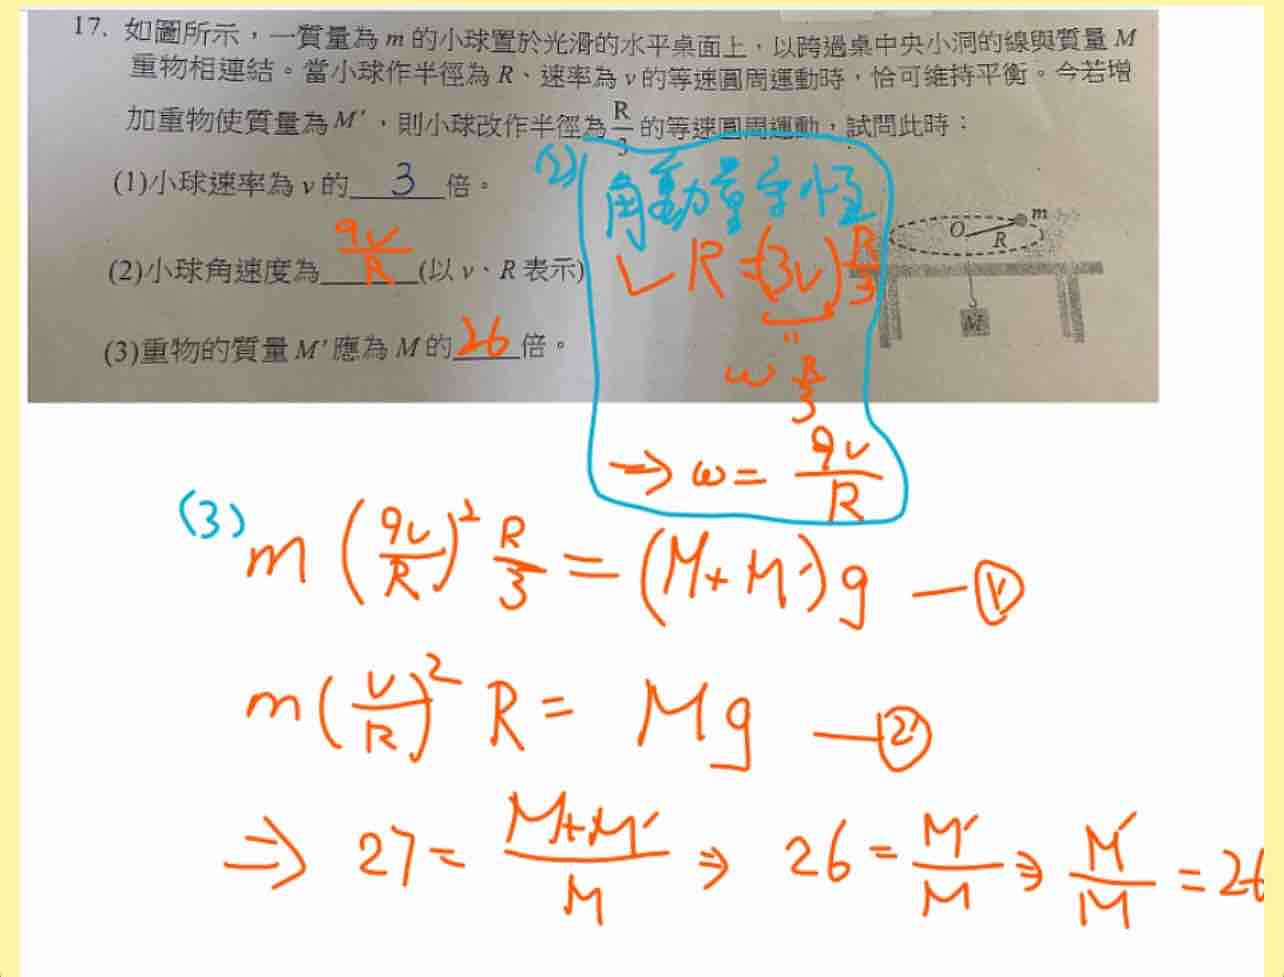 17. 如圖所示,一質量為 m 的小球置於光滑的水平桌面上,以跨過桌中央小洞的線與質量 M
重物相連結。當小球作半徑為 R、速率為 v 的等速圓周運動時,恰可維持平衡。今若增
加重物使質量為 M′,則小球改作半徑為 R/3 的等速圓周運動,試問此時:
(1)小球速率為 v 的 3 倍。
(2)小球角速度為 9v/R (以 v、R 表示)
(3)重物的質量 M′ 應為 M 的 26 倍。
m
O
R
M
(2)
角動量守恆
v R = (3v) R/3
"
ω R/3
⇒ ω = 9v/R
(3)
m (9v/R)² R/3 = (M+M′)g —①
m (v/R)² R = Mg —②
⇒ 27 = M+M′/M ⇒ 26 = M′/M ⇒ M′/M = 26